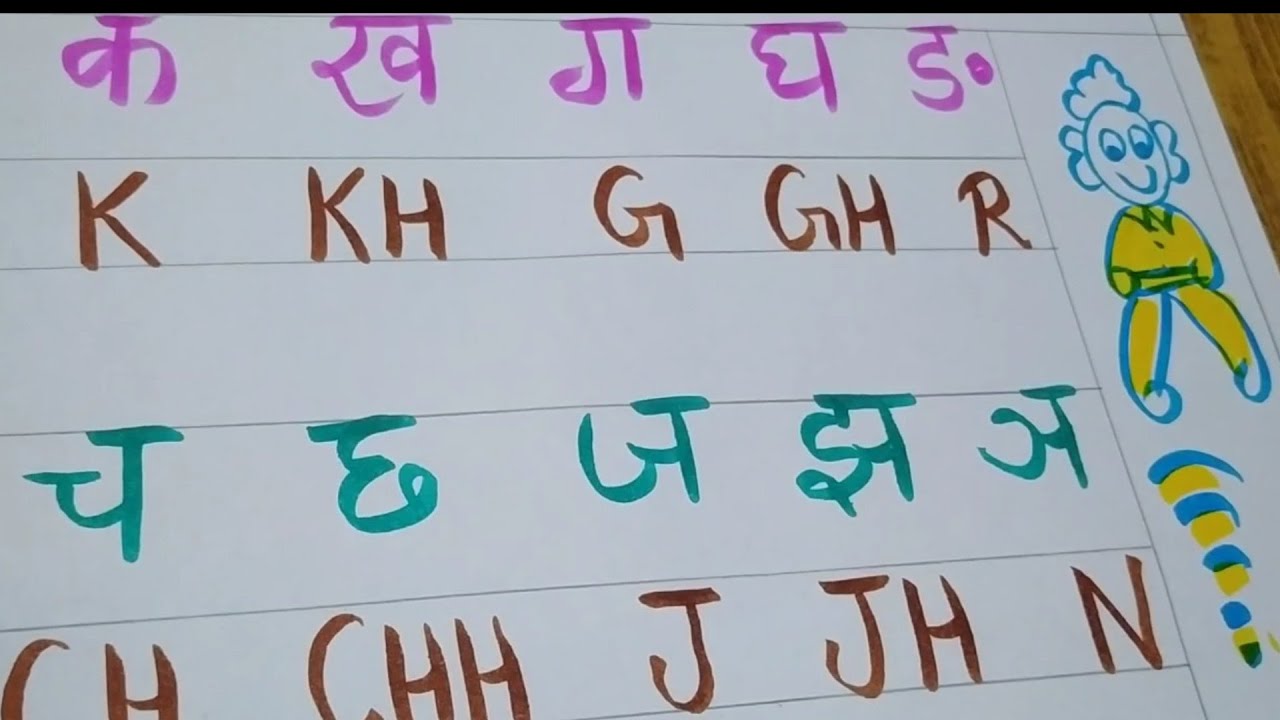 क ख ग घ ङ
K KH G GH R
च छ ज झ ञ
CH CHH J JH N